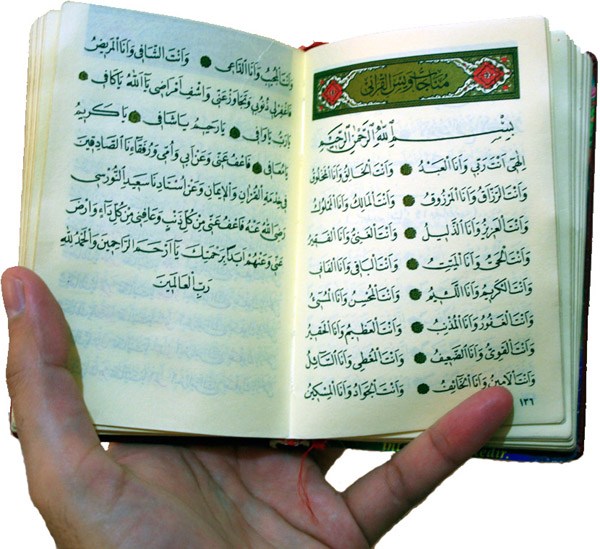 مناجات ويس القرانى
بِسْمِ اللّٰهِ الرَّحْمٰنِ الرَّحِيمِ
اِلٰهِى اَنْتَ رَبِّى وَاَنَا الْعَبْدُ ۞ وَاَنْتَ الْخَالِقُ وَاَنَا الْمَخْلُوقُ
وَاَنْتَ الرَّزَّاقُ وَاَنَا الْمَرْزُوقُ ۞ وَاَنْتَ الْمَالِكُ وَاَنَا الْمَمْلُوكُ
وَاَنْتَ الْعَزِيزُ وَاَنَا الذَّلِيلُ ۞ وَاَنْتَ الْغَنِىُّ وَاَنَا الْفَقِيرُ
وَاَنْتَ الْحَىُّ وَاَنَا الْمَيِّتُ ۞ وَاَنْتَ الْبَاقِى وَاَنَا الْفَانِى
وَاَنْتَ الْكَرِيمُ وَاَنَا اللَّئِيمُ ۞ وَاَنْتَ الْمُحْسِنُ وَاَنَا الْمُسِىءُ
وَاَنْتَ الْغَفُورُ وَاَنَا الْمُذْنِبُ ۞ وَاَنْتَ الْعَظِيمُ وَاَنَا الْحَقِيرُ
وَاَنْتَ الْقَوِىُّ وَاَنَا الضَّعِيفُ ۞ وَاَنْتَ الْمُعْطِى وَاَنَا السَّائِلُ
وَاَنْتَ الْاَمِينُ وَاَنَا الْخَائِفُ ۞ وَاَنْتَ الْجَوَادُ وَاَنَا الْمِسْكِينُ
١٣٦
وَاَنْتَ الْمُجِيبُ وَاَنَا الدَّاعِى ۞ وَاَنْتَ الشَّافِى وَاَنَا الْمَرِيضُ
فَاغْفِرْلِى ذُنُوبِى وَتَجَاوَزْ عَنِّى وَاشْفِ اَمْرَاضِى يَا اَللّٰهُ يَا كَافِى ۞
يَا رَبِّ يَا وَافِى ۞ يَا رَحِيمُ يَا شَافِى ۞ يَا كَرِيمُ
يَا مُعَافِى ۞ فَاعْفُ عَنِّى وَعَنْ اَبِى وَاُمِّى وَرُفَقَاءِنَا الصَّادِقِينَ
فِى خِدْمَةِ الْقُرْاٰنِ وَالْاِيمَانِ وَعَنْ اُسْتَادِنَا سَعِيدِ النُّورْسِى
رَضِىَ اللّٰهُ عَنْهُ فَاعْفُ عَنِّى مِنْ كُلِّ ذَنْبٍ وَعَافِنِى مِنْ كُلِّ دَاءٍ وَارْضَ
عَنِّى وَعَنْهُمْ اَبَدًا بِرَحْمَتِكَ يَا اَرْحَمَ الرَّاحِمِينَ وَالْحَمْدُ لِلّٰهِ
رَبِّ الْعَالَمِينَ